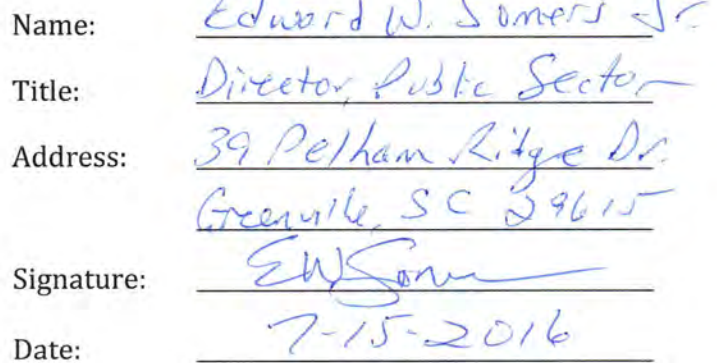 Name: Edward W. Somers Jr.
Title: Director, Public Sector
Address: 39 Pelham Ridge Dr.
Greenville, SC 29615
Signature: EWSomers
Date: 7-15-2016